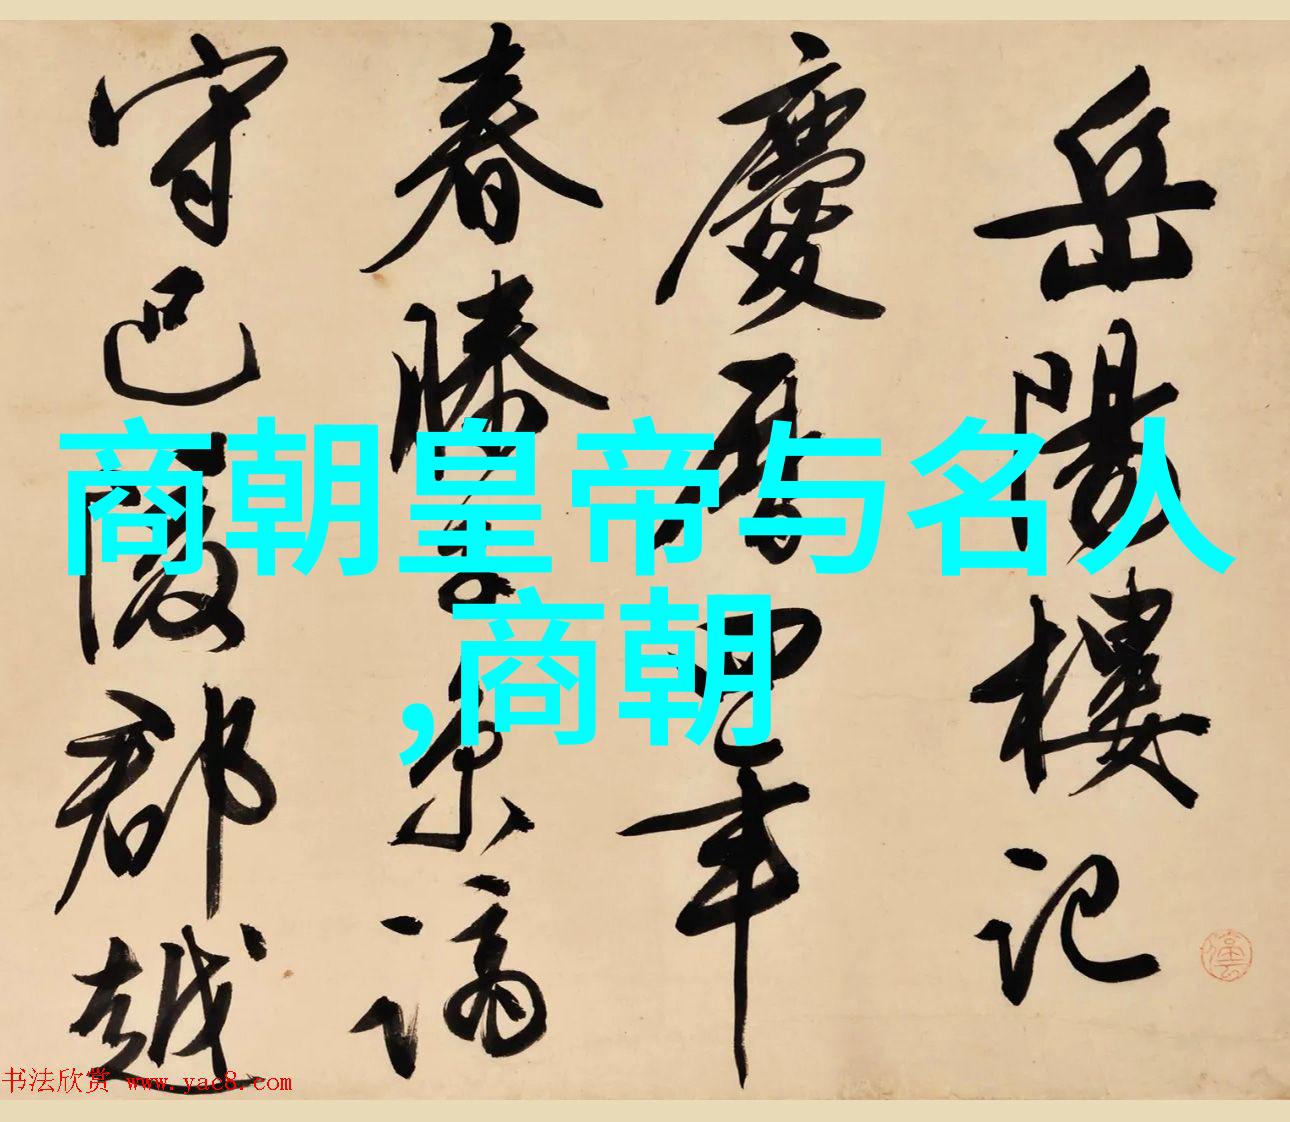 岳陽樓記
慶曆四年
春滕子京謫
守巴陵郡越
商朝皇帝与名人
,商朝
书法欣赏 www.yac8.com